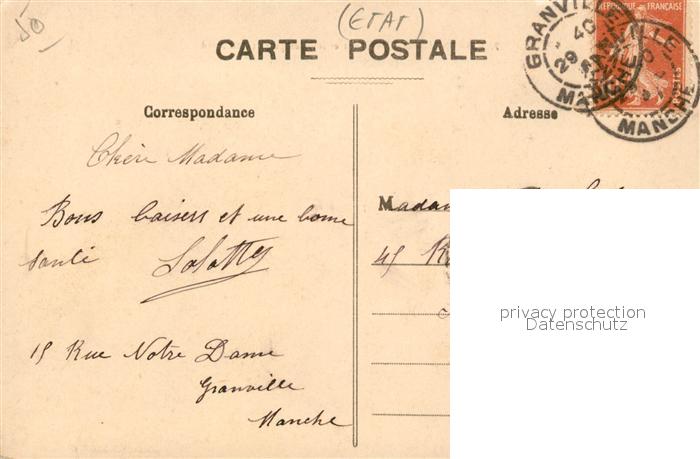 50
(ETAT)
CARTE POSTALE
GRANVILLE
MANCHE
RÉPUBLIQUE FRANÇAISE
POSTES
MANCHE
Correspondance
Adresse
Chère Madame
Bons baisers et une bonne
santé
15 Rue Notre Dame
Granville
Manche
Madam
45 R
privacy protection
Datenschutz